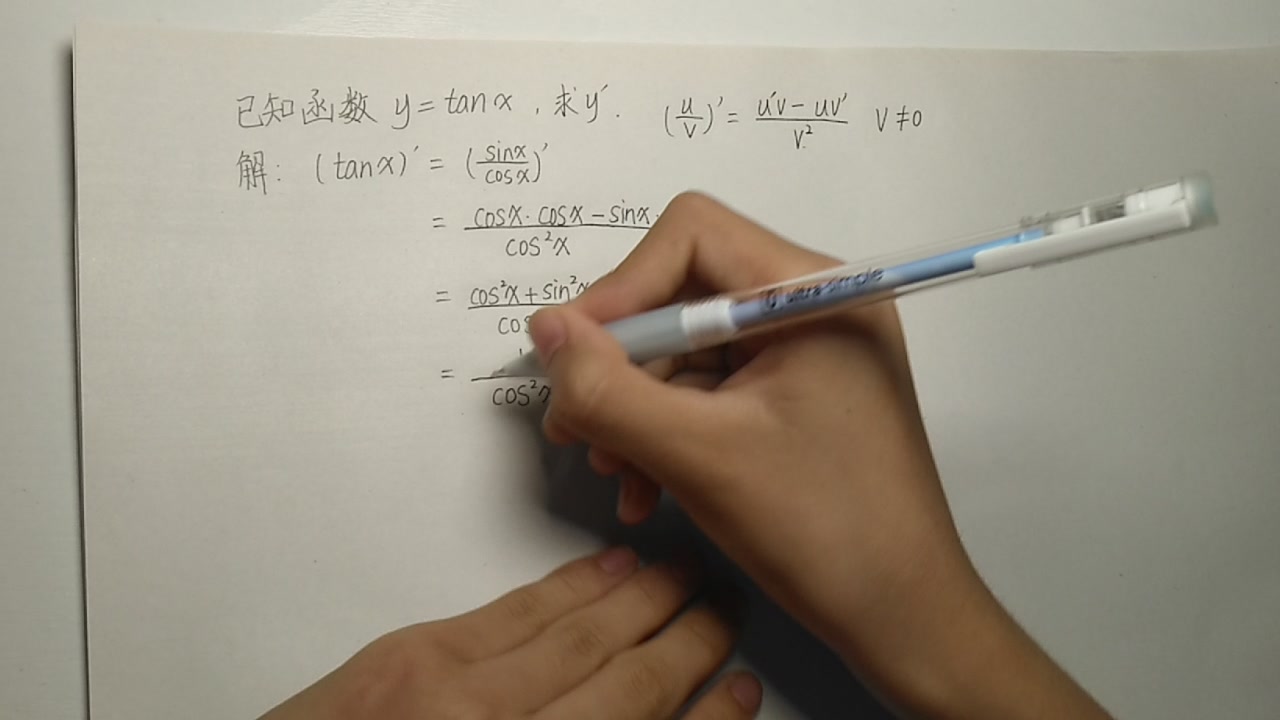 已知函数 y = tanx , 求y'. (u/v)' = (u'v - uv')/v² v ≠ 0
解: (tanx)' = (sinx/cosx)'
= cosx · cosx - sinx ·/cos²x
= cos²x + sin²x/cos
= 1/cos²x
ultra-simple